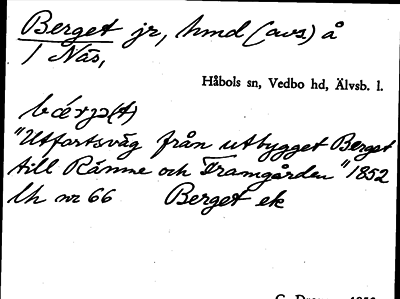 Berget jr, hmd (avs) å
1 Näs,
Håbols sn, Vedbo hd, Älvsb. l.
bǽrjə(t)
"Utfartsväg från utbygget Berget
till Rämne och Framgården" 1852
lh nr 66 Berget ek